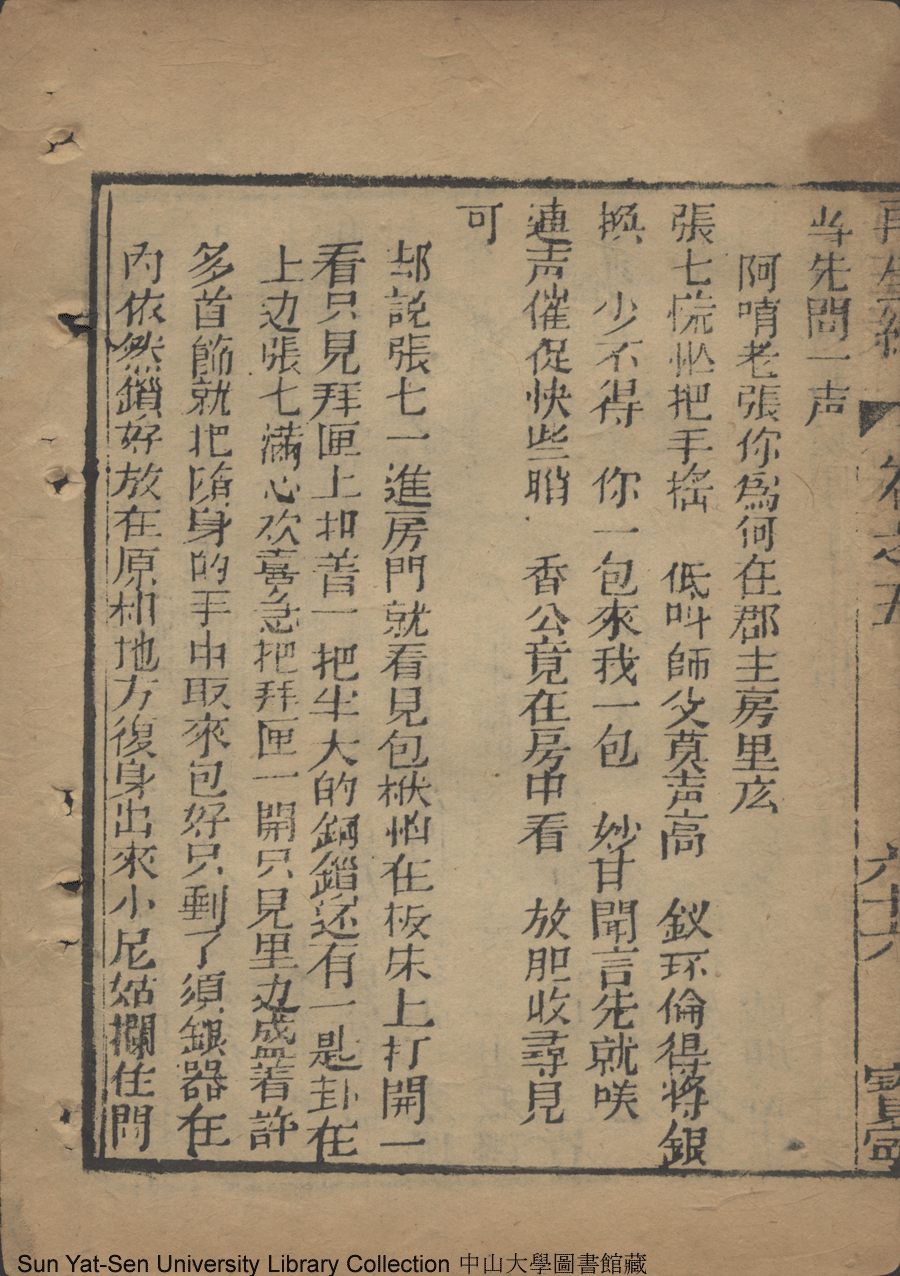 再生緣 卷之五 六十六 寶寧
当先問一声
阿唷老張你為何在郡主房里庅
張七慌忙把手搖 低叫師父莫声高 釵环偷得蔣銀
換 少不得 你一包來我一包 妙甘聞言先就咲
連声催促快些睄 香公竟在房中看 放胆收尋見
可
却說張七一進房門就看見包袱怕在板床上打開一
看只見拜匣上扣着一把生大的銅鎖还有一匙卦在
上边張七滿心欢喜急把拜匣一開只見里边盛着許
多首飾就把随身的手巾取來包好只剩了須銀器在
內依然鎖好放在原相地方復身出來小尼姑攔住問
Sun Yat-Sen University Library Collection 中山大學圖書館藏